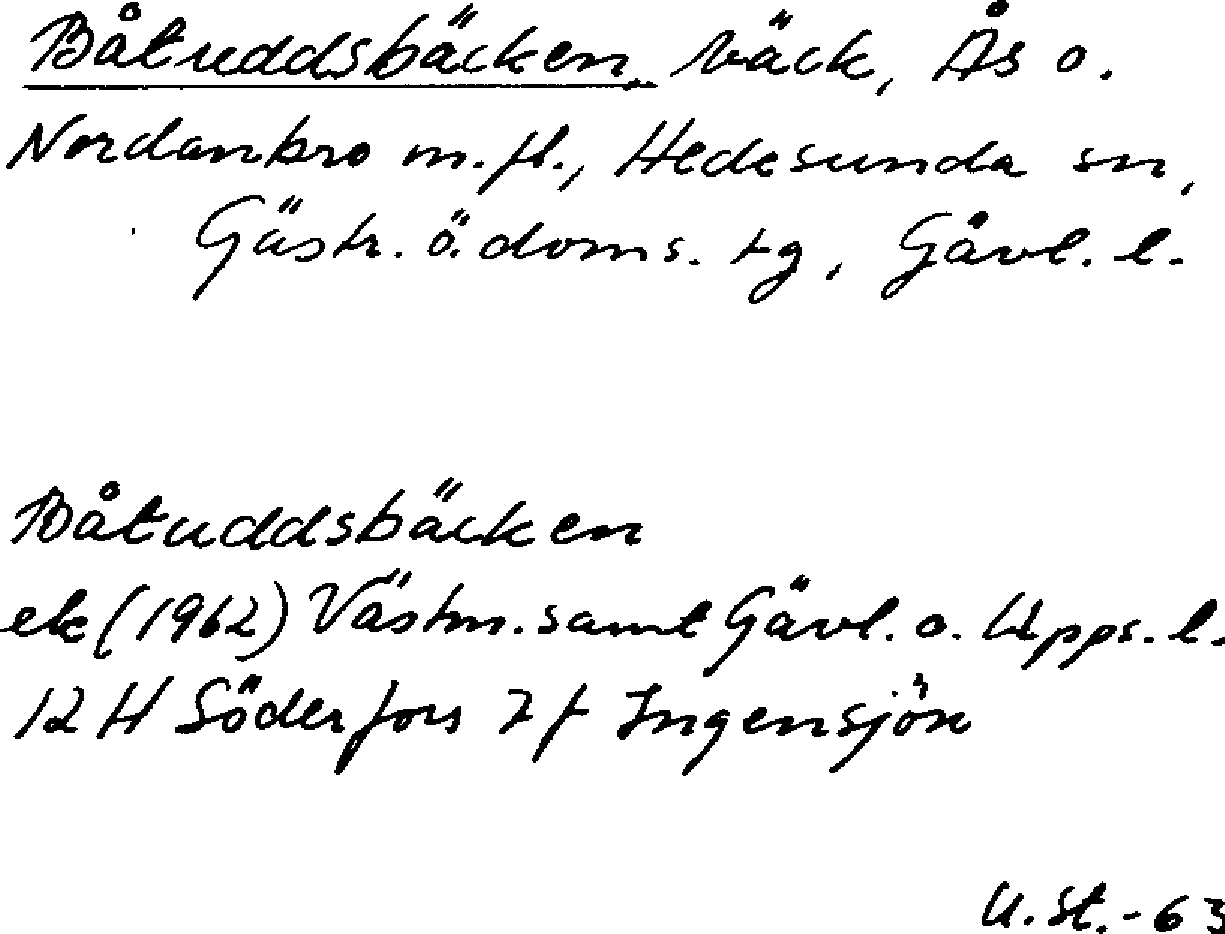 Båtuddsbäcken, bäck, Ås o.
Nordanbro m.fl., Hedesunda sn,
Gästr. ö. doms. tg, Gävl. l.
Båtuddsbäcken
ek (1962) Västm. samt Gävl. o. Upps. l.
12 H Söderfors 7 f Ingensjön
U. St. - 63